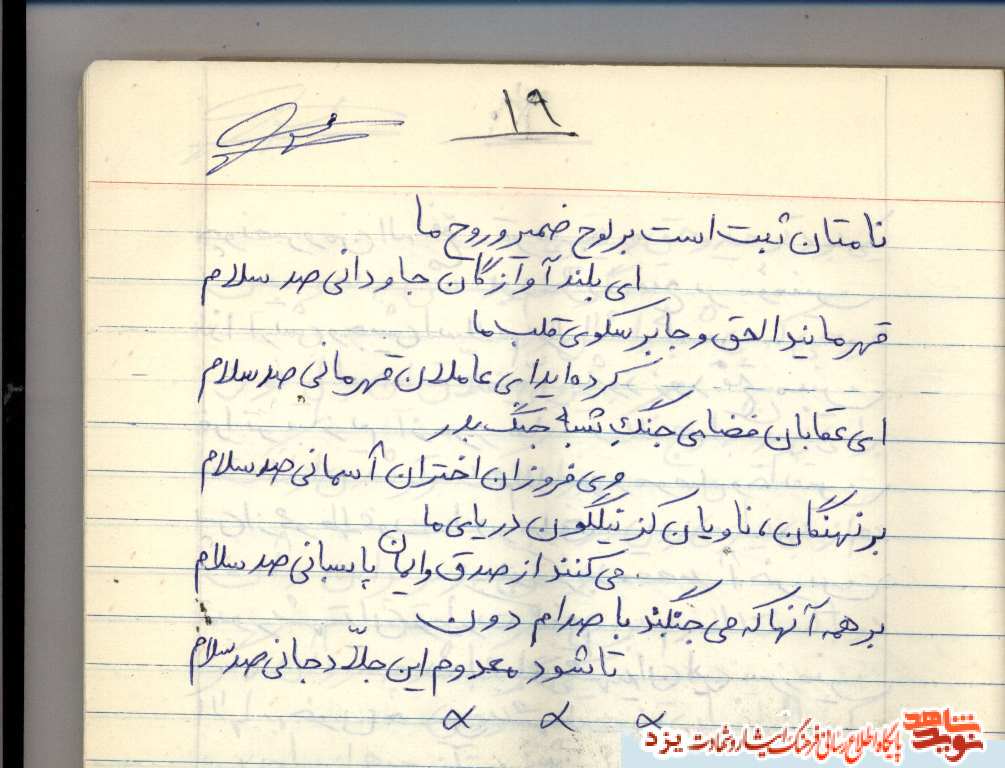 ۱۹
نامتان ثبت است بر لوح ضمیر و روح ما
ای بلند آوازگان جاودانی صد سلام
قهرمانید الحق و جا بر سکوی قلب ما
کرده‌اید ای عاملان قهرمانی صد سلام
ای عقابان فضای جنگِ شبه جنگ بدر
وی فروزان اختران آسمانی صد سلام
بر نهنگان، ناویان کز نیلگون دریای ما
می کنند از صدق و ایمان پاسبانی صد سلام
بر همه آنها که می جنگند با صدام دون
تا شود معدوم این جلّاد جانی صد سلام
نوید شاهد
پایگاه اطلاع رسانی فرهنگ ایثار و شهادت یزد